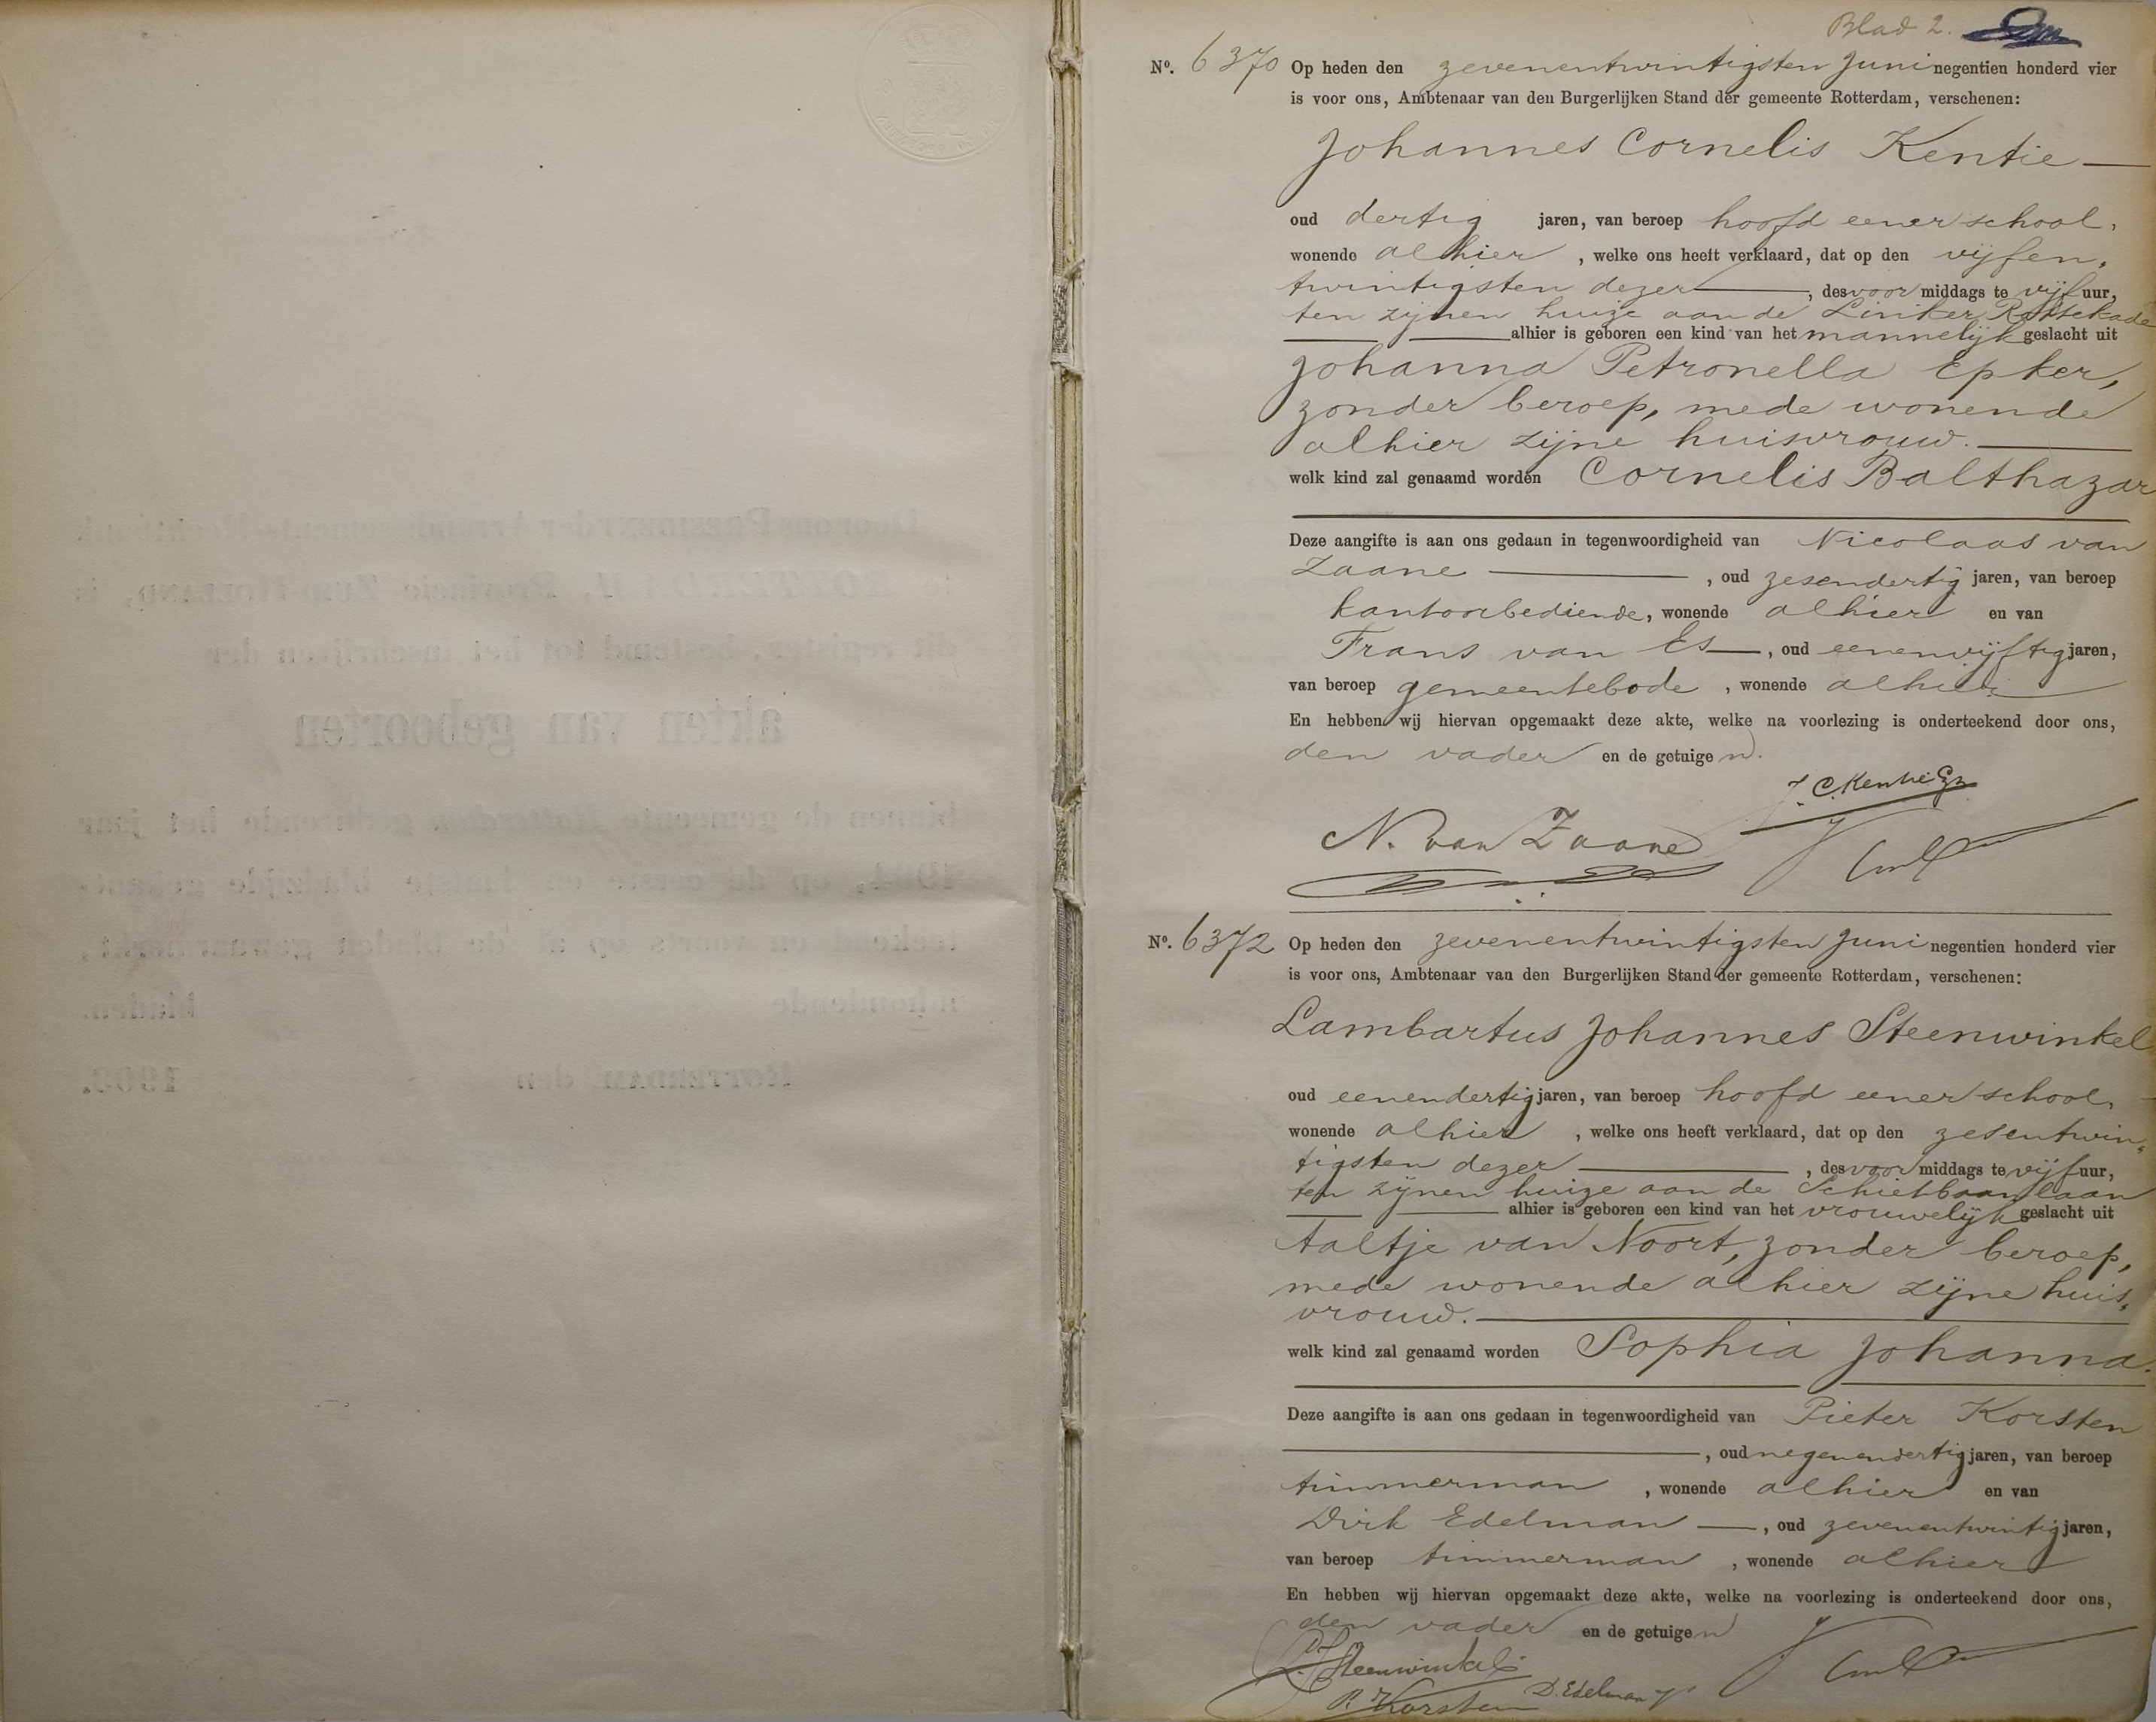 Blad 2.
Nº. 6370 Op heden den zevenentwintigsten Juni negentien honderd vier
is voor ons, Ambtenaar van den Burgerlijken Stand der gemeente Rotterdam, verschenen:
Johannes Cornelis Kentie
oud dertig jaren, van beroep hoofd eener school,
wonende alhier, welke ons heeft verklaard, dat op den vijfen„
twintigsten dezer, des voor middags te vijf uur,
ten zijnen huize aan de Linker Rottekade
alhier is geboren een kind van het mannelijk geslacht uit
Johanna Petronella Epker,
zonder beroep, mede wonende
alhier zijne huisvrouw.
welk kind zal genaamd worden Cornelis Balthazar
Deze aangifte is aan ons gedaan in tegenwoordigheid van Nicolaas van
Zaane, oud zesendertig jaren, van beroep
kantoorbediende, wonende alhier en van
Frans van Es, oud eenenvijftig jaren,
van beroep gemeentebode, wonende alhier
En hebben wij hiervan opgemaakt deze akte, welke na voorlezing is onderteekend door ons,
den vader en de getuigen.
J. C. Kentie Gzn
N. van Zaane
Nº. 6372 Op heden den zevenentwintigsten Juni negentien honderd vier
is voor ons, Ambtenaar van den Burgerlijken Stand der gemeente Rotterdam, verschenen:
Lambartus Johannes Steenwinkel
oud eenendertig jaren, van beroep hoofd eener school,
wonende alhier, welke ons heeft verklaard, dat op den zesentwin„
tigsten dezer, des voor middags te vijf uur,
ten zijnen huize aan de Schietbaanlaan
alhier is geboren een kind van het vrouwelijk geslacht uit
Aaltje van Noort, zonder beroep,
mede wonende alhier zijne huis„
vrouw.
welk kind zal genaamd worden Sophia Johanna.
Deze aangifte is aan ons gedaan in tegenwoordigheid van Pieter Korsten
, oud negenendertig jaren, van beroep
timmerman, wonende alhier en van
Dirk Edelman, oud zevenentwintig jaren,
van beroep timmerman, wonende alhier
En hebben wij hiervan opgemaakt deze akte, welke na voorlezing is onderteekend door ons,
den vader en de getuigen
L. J. Steenwinkel
P. Korsten D. Edelman